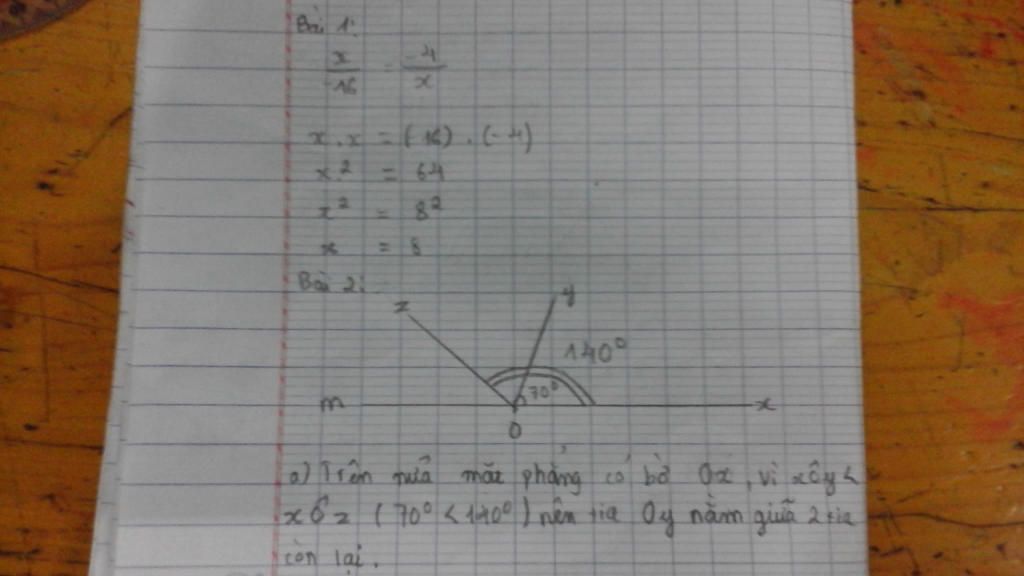 Bài 1:
x/-16 = -4/x
x . x = (-16) . (-4)
x² = 64
x² = 8²
x = 8
Bài 2:
z
y
140°
70°
m
x
O
a) Trên nửa mặt phẳng có bờ Ox, vì xÔy <
xÔz (70° < 140°) nên tia Oy nằm giữa 2 tia
còn lại.